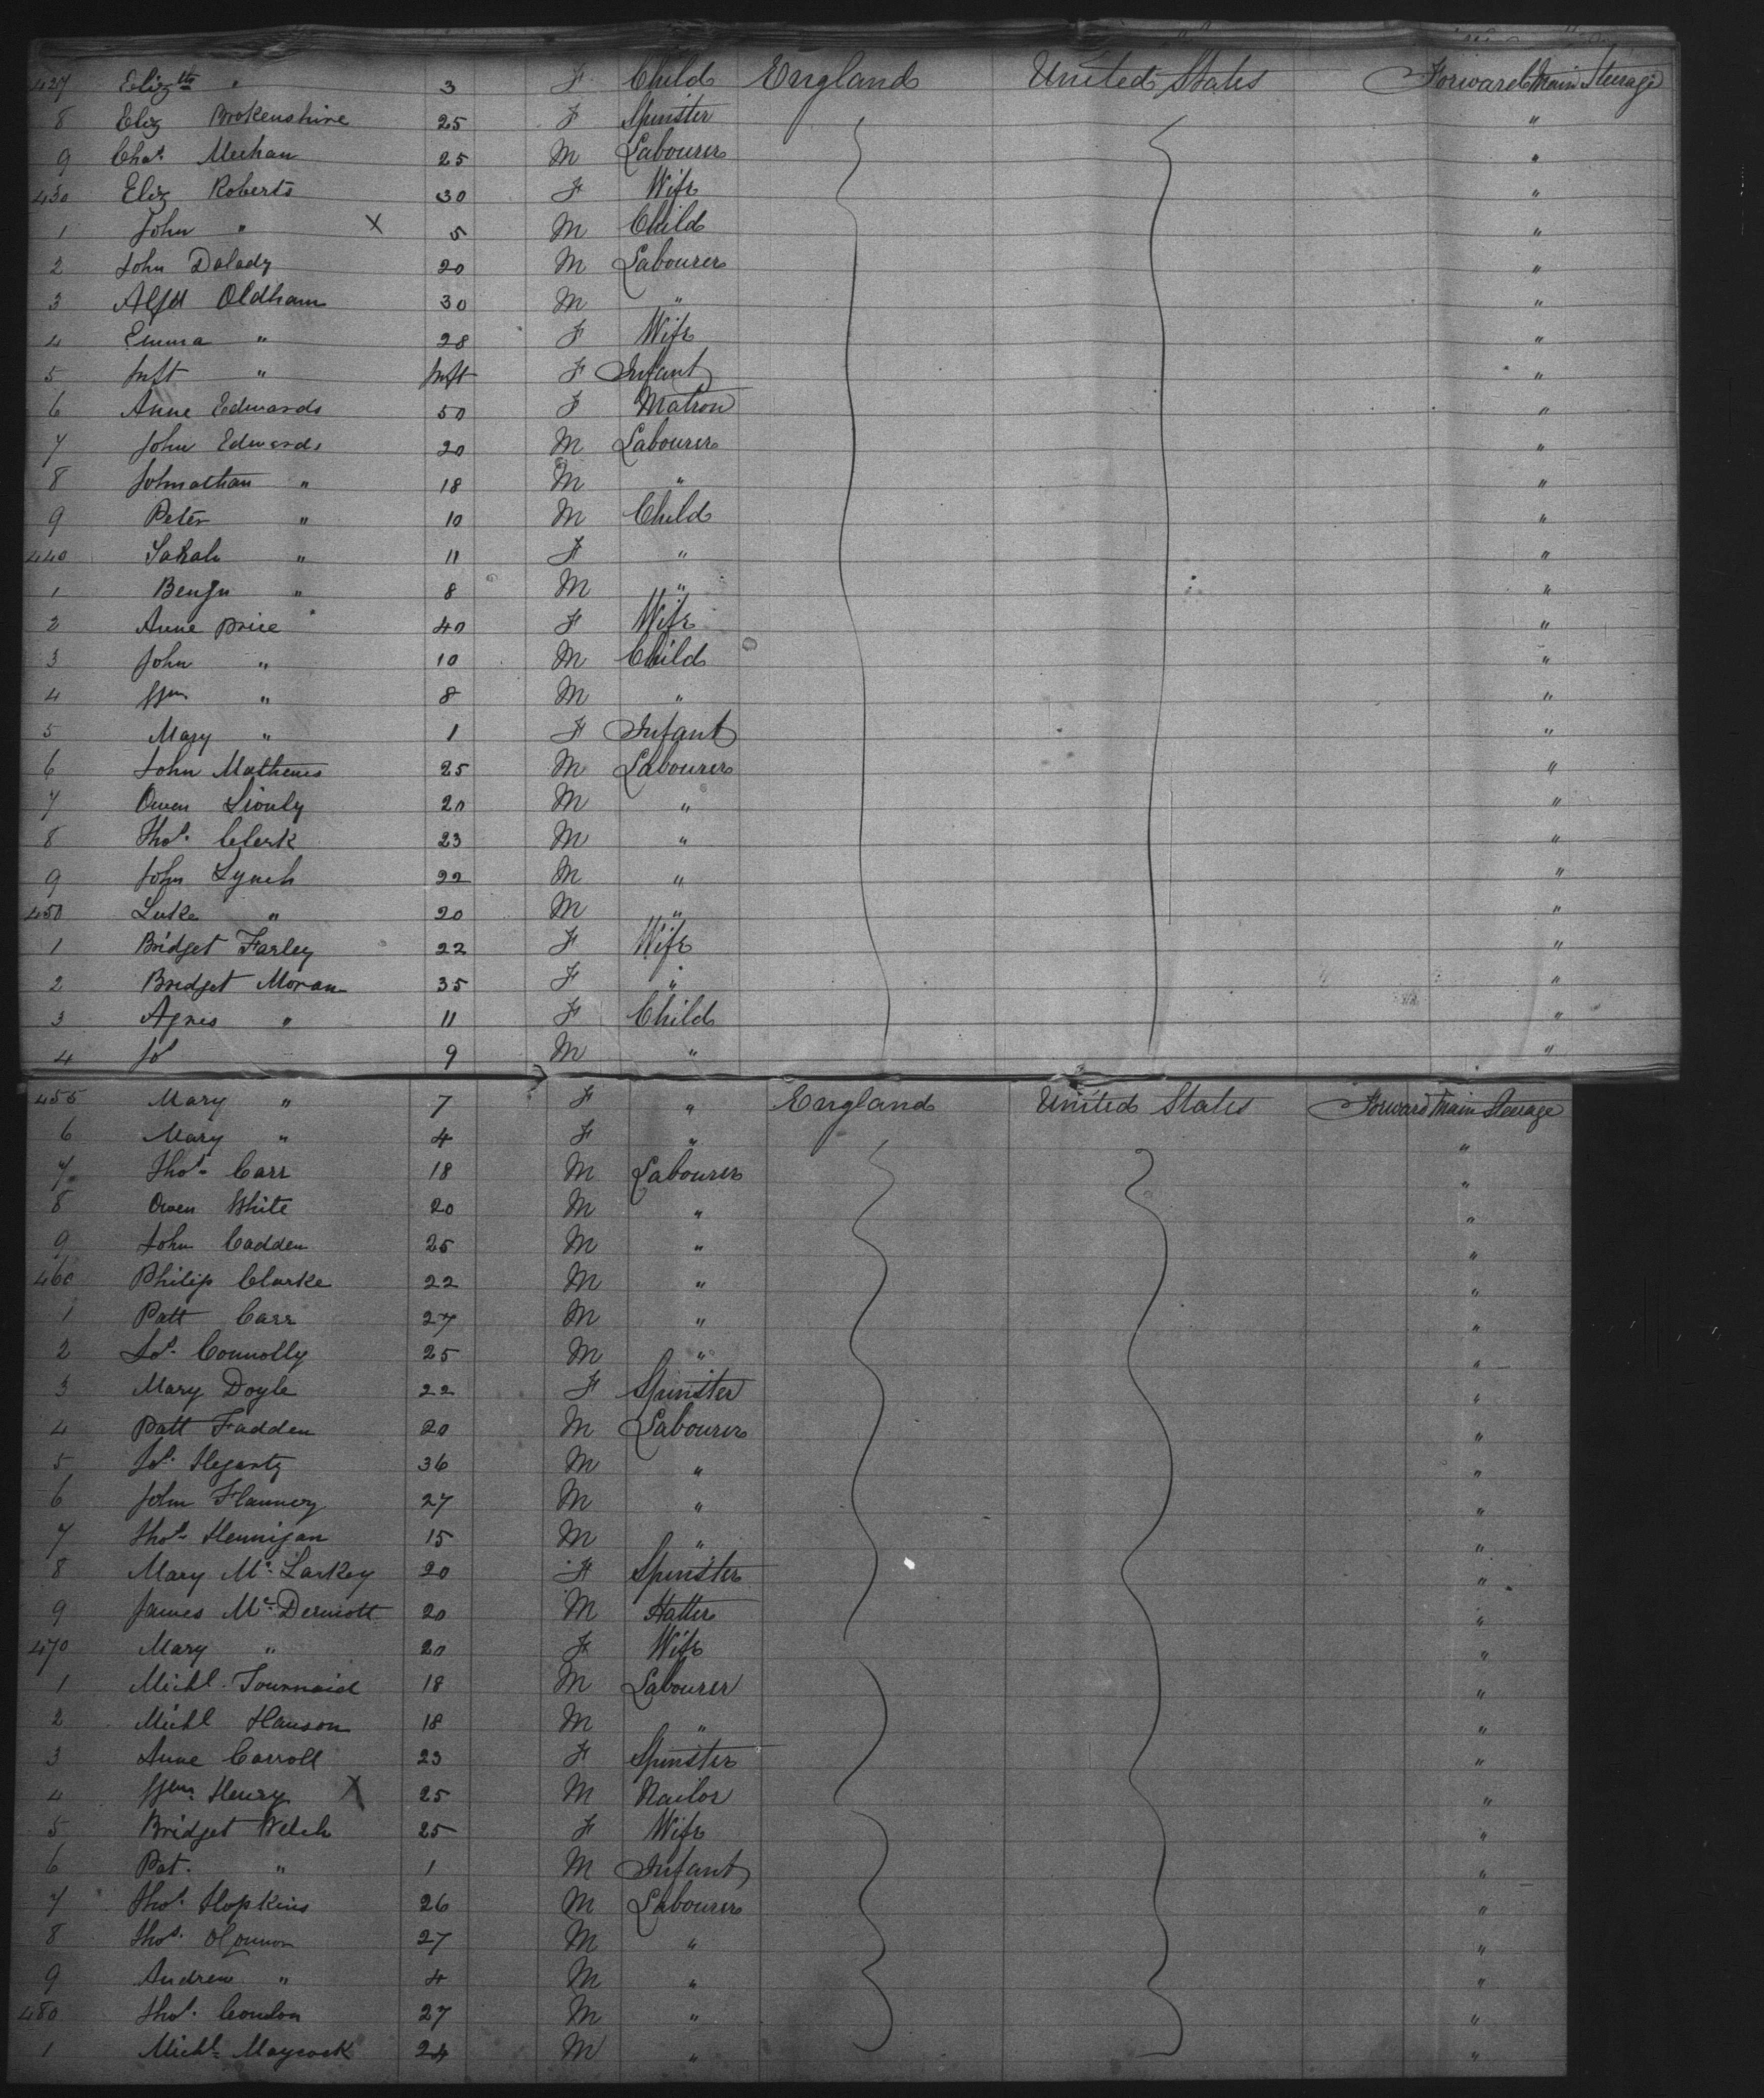 427 Elizth " 3 F Child England United States Forward Main Steerage
8 Eliz Brokenshire 25 F Spinster "
9 Chas. Meehan 25 M Labourer "
430 Eliz Roberts 30 F Wife "
1 John " X 5 M Child "
2 John Dalady 20 M Labourer "
3 Alfd Oldham 30 M " "
4 Emma " 28 F Wife "
5 Inft " Inft F Infant "
6 Anne Edwards 50 F Matron "
7 John Edwards 20 M Labourer "
8 Johnathan " 18 M " "
9 Peter " 10 M Child "
440 Sarah " 11 F " "
1 Benjn " 8 M " "
2 Anne Price 40 F Wife "
3 John " 10 M Child "
4 Wm " 8 M " "
5 Mary " 1 F Infant "
6 John Mathews 25 M Labourer "
7 Owen 20 M " "
8 Thos. Clerk 23 M " "
9 John Lynch 22 M " "
450 Luke " 20 M " "
1 Bridget Farley 22 F Wife "
2 Bridget Moran 35 F " "
3 Agnes " 11 F Child "
4 Js 9 M " "
455 Mary " 7 F " England United States Forward Main Steerage
6 Mary " 4 F " "
7 Thos. Carr 18 M Labourer "
8 Owen White 20 M " "
9 John Cadden 25 M " "
460 Philip Clarke 22 M " "
1 Patt Carr 27 M " "
2 Jas. Connolly 25 M " "
3 Mary Doyle 22 F Spinster "
4 Patt Fadden 20 M Labourer "
5 Js. Hegarty 36 M " "
6 John Flannery 27 M " "
7 Thos. Hennigan 15 M " "
8 Mary Mc. Larkey 20 F Spinster "
9 James Mc. Dermott 20 M Hatter "
470 Mary " 20 F Wife "
1 Michl. 18 M Labourer "
2 Michl Hanson 18 M " "
3 Anne Carroll 23 F Spinster "
4 Wm. Henry X 25 M Nailor "
5 Bridget Welch 25 F Wife "
6 Pat. " 1 M Infant "
7 Thos. Hopkins 26 M Labourer "
8 Thos. OConnor 27 M " "
9 Andrew " 4 M " "
480 Thos. Condon 27 M " "
1 Michl. Maycock 24 M " "